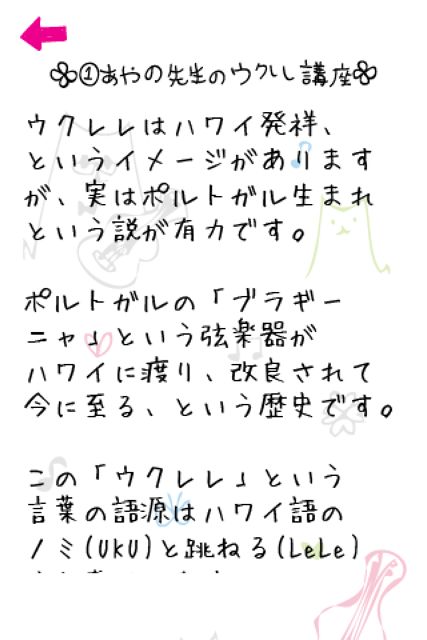 ①あやの先生のウクレレ講座
ウクレレはハワイ発祥、
というイメージがあります
が、実はポルトガル生まれ
という説が有力です。
ポルトガルの「ブラギー
ニャ」という弦楽器が
ハワイに渡り、改良されて
今に至る、という歴史です。
この「ウクレレ」という
言葉の語源はハワイ語の
ノミ(UKU)と跳ねる(LeLe)